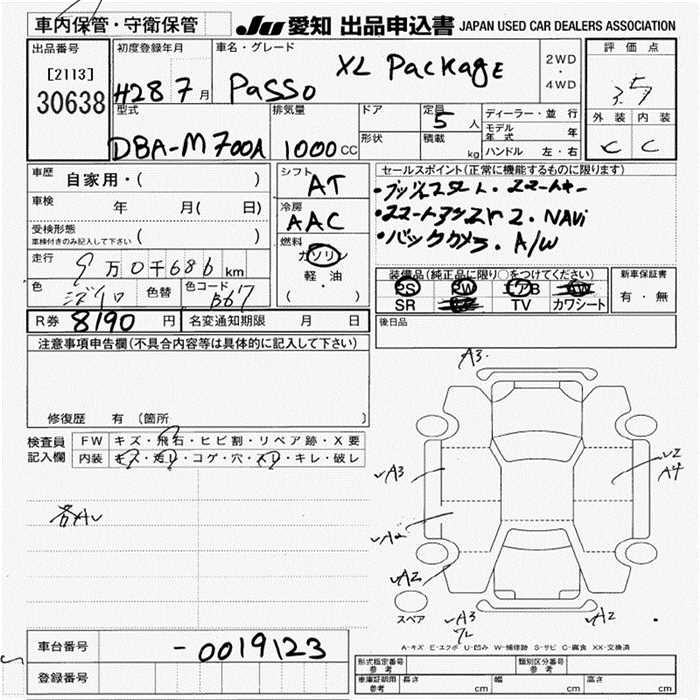 車内保管・守衛保管
JU 愛知 出品申込書 JAPAN USED CAR DEALERS ASSOCIATION
出品番号
[2113]
30638
初度登録年月
H28 7 月
車名・グレード
Passo XL Package
2WD
・
4WD
評価点
3.5
外装 内装
C C
型式
DBA-M700A
排気量
1000 CC
ドア
形状
定員
5 人
積載
kg
ディーラー・並行
モデル年式 年
ハンドル 左・右
車歴
自家用・( )
車検
年 月( 日)
受検形態
車検付きのみ記入して下さい ( )
走行
9 万 0 千 686 km
色
色替
色コード
B67
シフト
AT
冷房
AAC
燃料
ガソリン
軽・油
( ・ )
セールスポイント(正常に機能するものに限ります)
・プッシュスタート・スマートキー
・スマートアシスト2・NAVi
・バックカメラ・A/W
装備品(純正品に限り○をつけてください)
PS PW エアB AW
SR TV カワシート
新車保証書
有・無
R券 8190 円
名変通知期限 月 日
後日品
注意事項申告欄(不具合内容等は具体的に記入して下さい)
修復歴 有(箇所 )
検査員
記入欄
FW キズ・飛石・ヒビ割・リペア跡・X要
内装 キズ・汚レ・コゲ・穴・スレ・キレ・破レ
A3
A3
A2
A2
A4
A3
A2
スペア
A-キズ E-エクボ U-凹み W-補修跡 S-サビ C-腐食 XX-交換済
車台番号
-0019123
登録番号
形式指定番号
参考
類別区分番号
参考
車庫証明用
参考
長さ cm 幅 cm 高さ cm